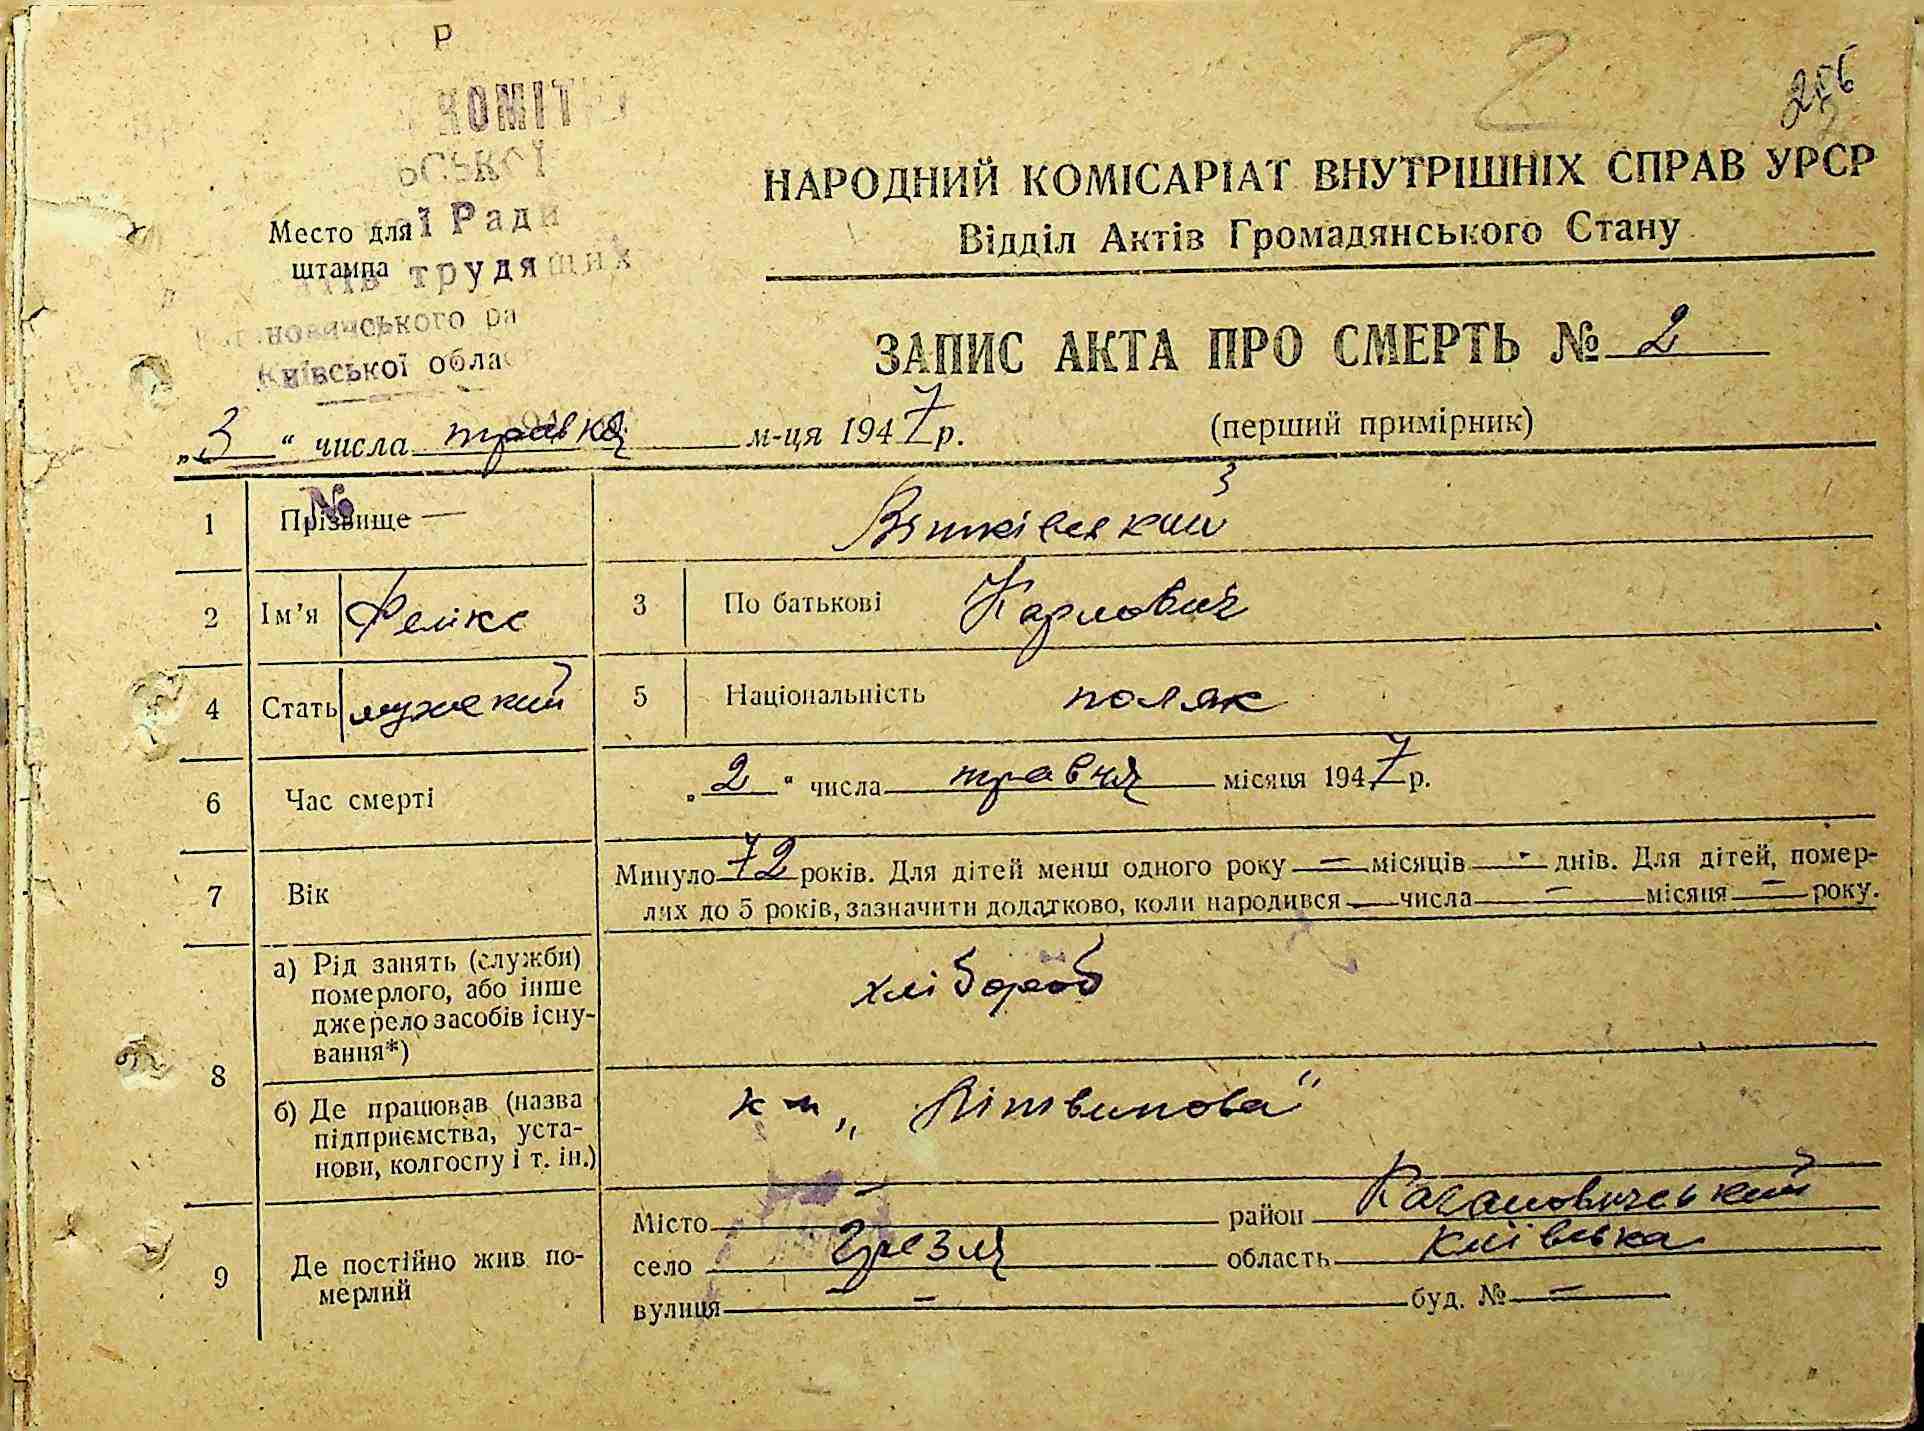 Р
КОМІТ
ської
ої Ради
Место для
штампа
тів трудящих
Кагановичського ра
Київської облас
2
256
НАРОДНИЙ КОМІСАРІАТ ВНУТРІШНІХ СПРАВ УРСР
Відділ Актів Громадянського Стану
ЗАПИС АКТА ПРО СМЕРТЬ № 2
„3“ числа травня м-ця 1947 р.
(перший примірник)
№
1 Прізвище — Вітківський
2 Ім'я Фелікс 3 По батькові Карлович
4 Стать мужский 5 Національність поляк
6 Час смерті „2“ числа травня місяця 1947 р.
7 Вік Минуло 72 років. Для дітей менш одного року — місяців — днів. Для дітей, помер-
лих до 5 років, зазначити додатково, коли народився — числа — місяця — року.
8 а) Рід занять (служби)
померлого, або інше
джерело засобів існу-
вання*)
хлібороб
б) Де працював (назва
підприємства, уста-
нови, колгоспу і т. ін.)
к-п „Літвинова“
9 Де постійно жив по-
мерлий
Місто — район Кагановичський
село Грезля область Київська
вулиця — буд. № —